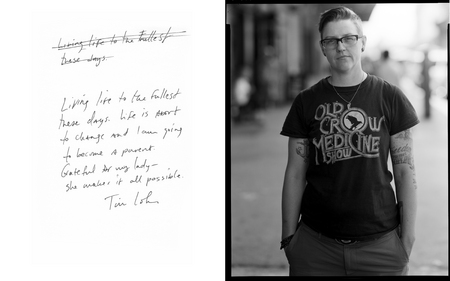 Living life to the fullest
these days.
Living life to the fullest
these days. Life is about
to change and I am going
to become a parent.
Grateful for my lady-
she makes it all possible
Tim
OLD
CROW
MEDICINE
SHOW